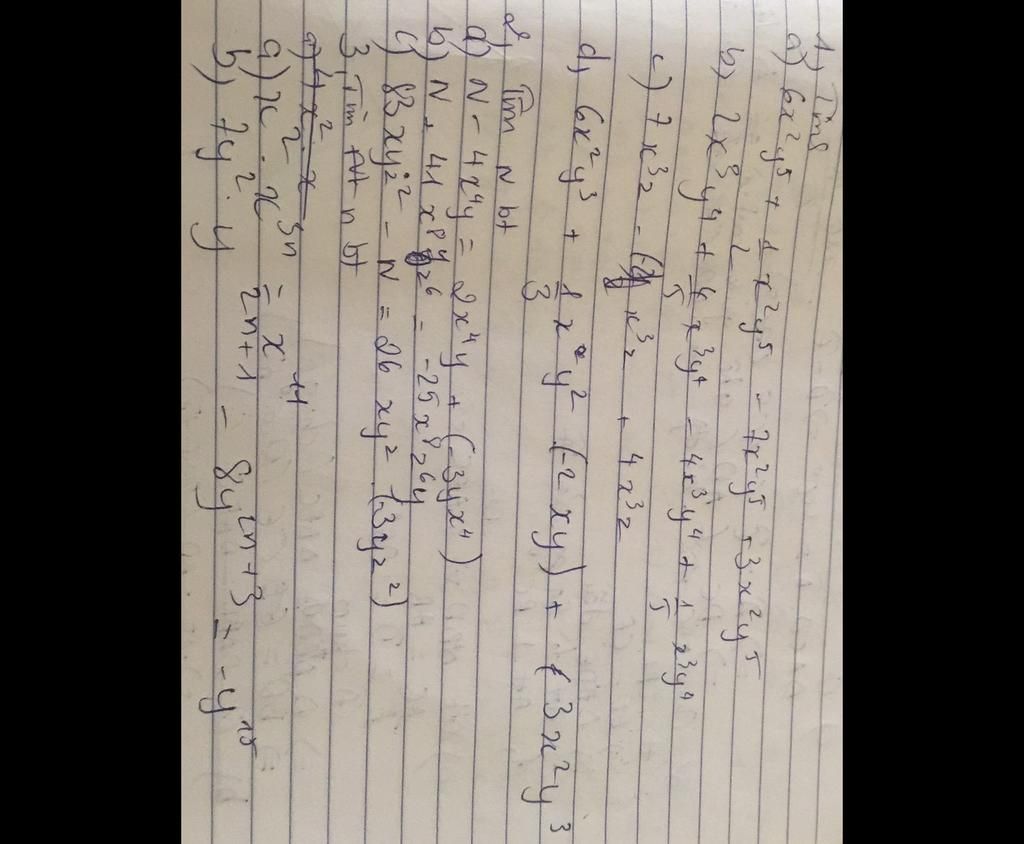 1, Tìm
a) 6x²y⁵ + 1/2 x²y⁵ - 7x²y⁵ - 3x²y⁵
b, 2x³y⁴ + 4/5 x³y⁴ - 4x³y⁴ + 1/5 x³y⁴
c) 7x³z - (-2) x³z + 4x³z
d, 6x²y³ + 1/3 x y² (-2xy) + (3x²y³
2, Tìm N bt
a) N - 4x⁴y = 2x⁴y + (-3yx⁴)
b) N + 41x⁸yz⁶ = -25x⁸z⁶y
c) 83xyz² - N = 26xy² - (3yz²)
3, Tìm n bt
a) 4x² . x
a) x² . x³ⁿ = x¹¹
b) 7y² . y²ⁿ⁺¹ - 8y²ⁿ⁺³ = -y¹⁵